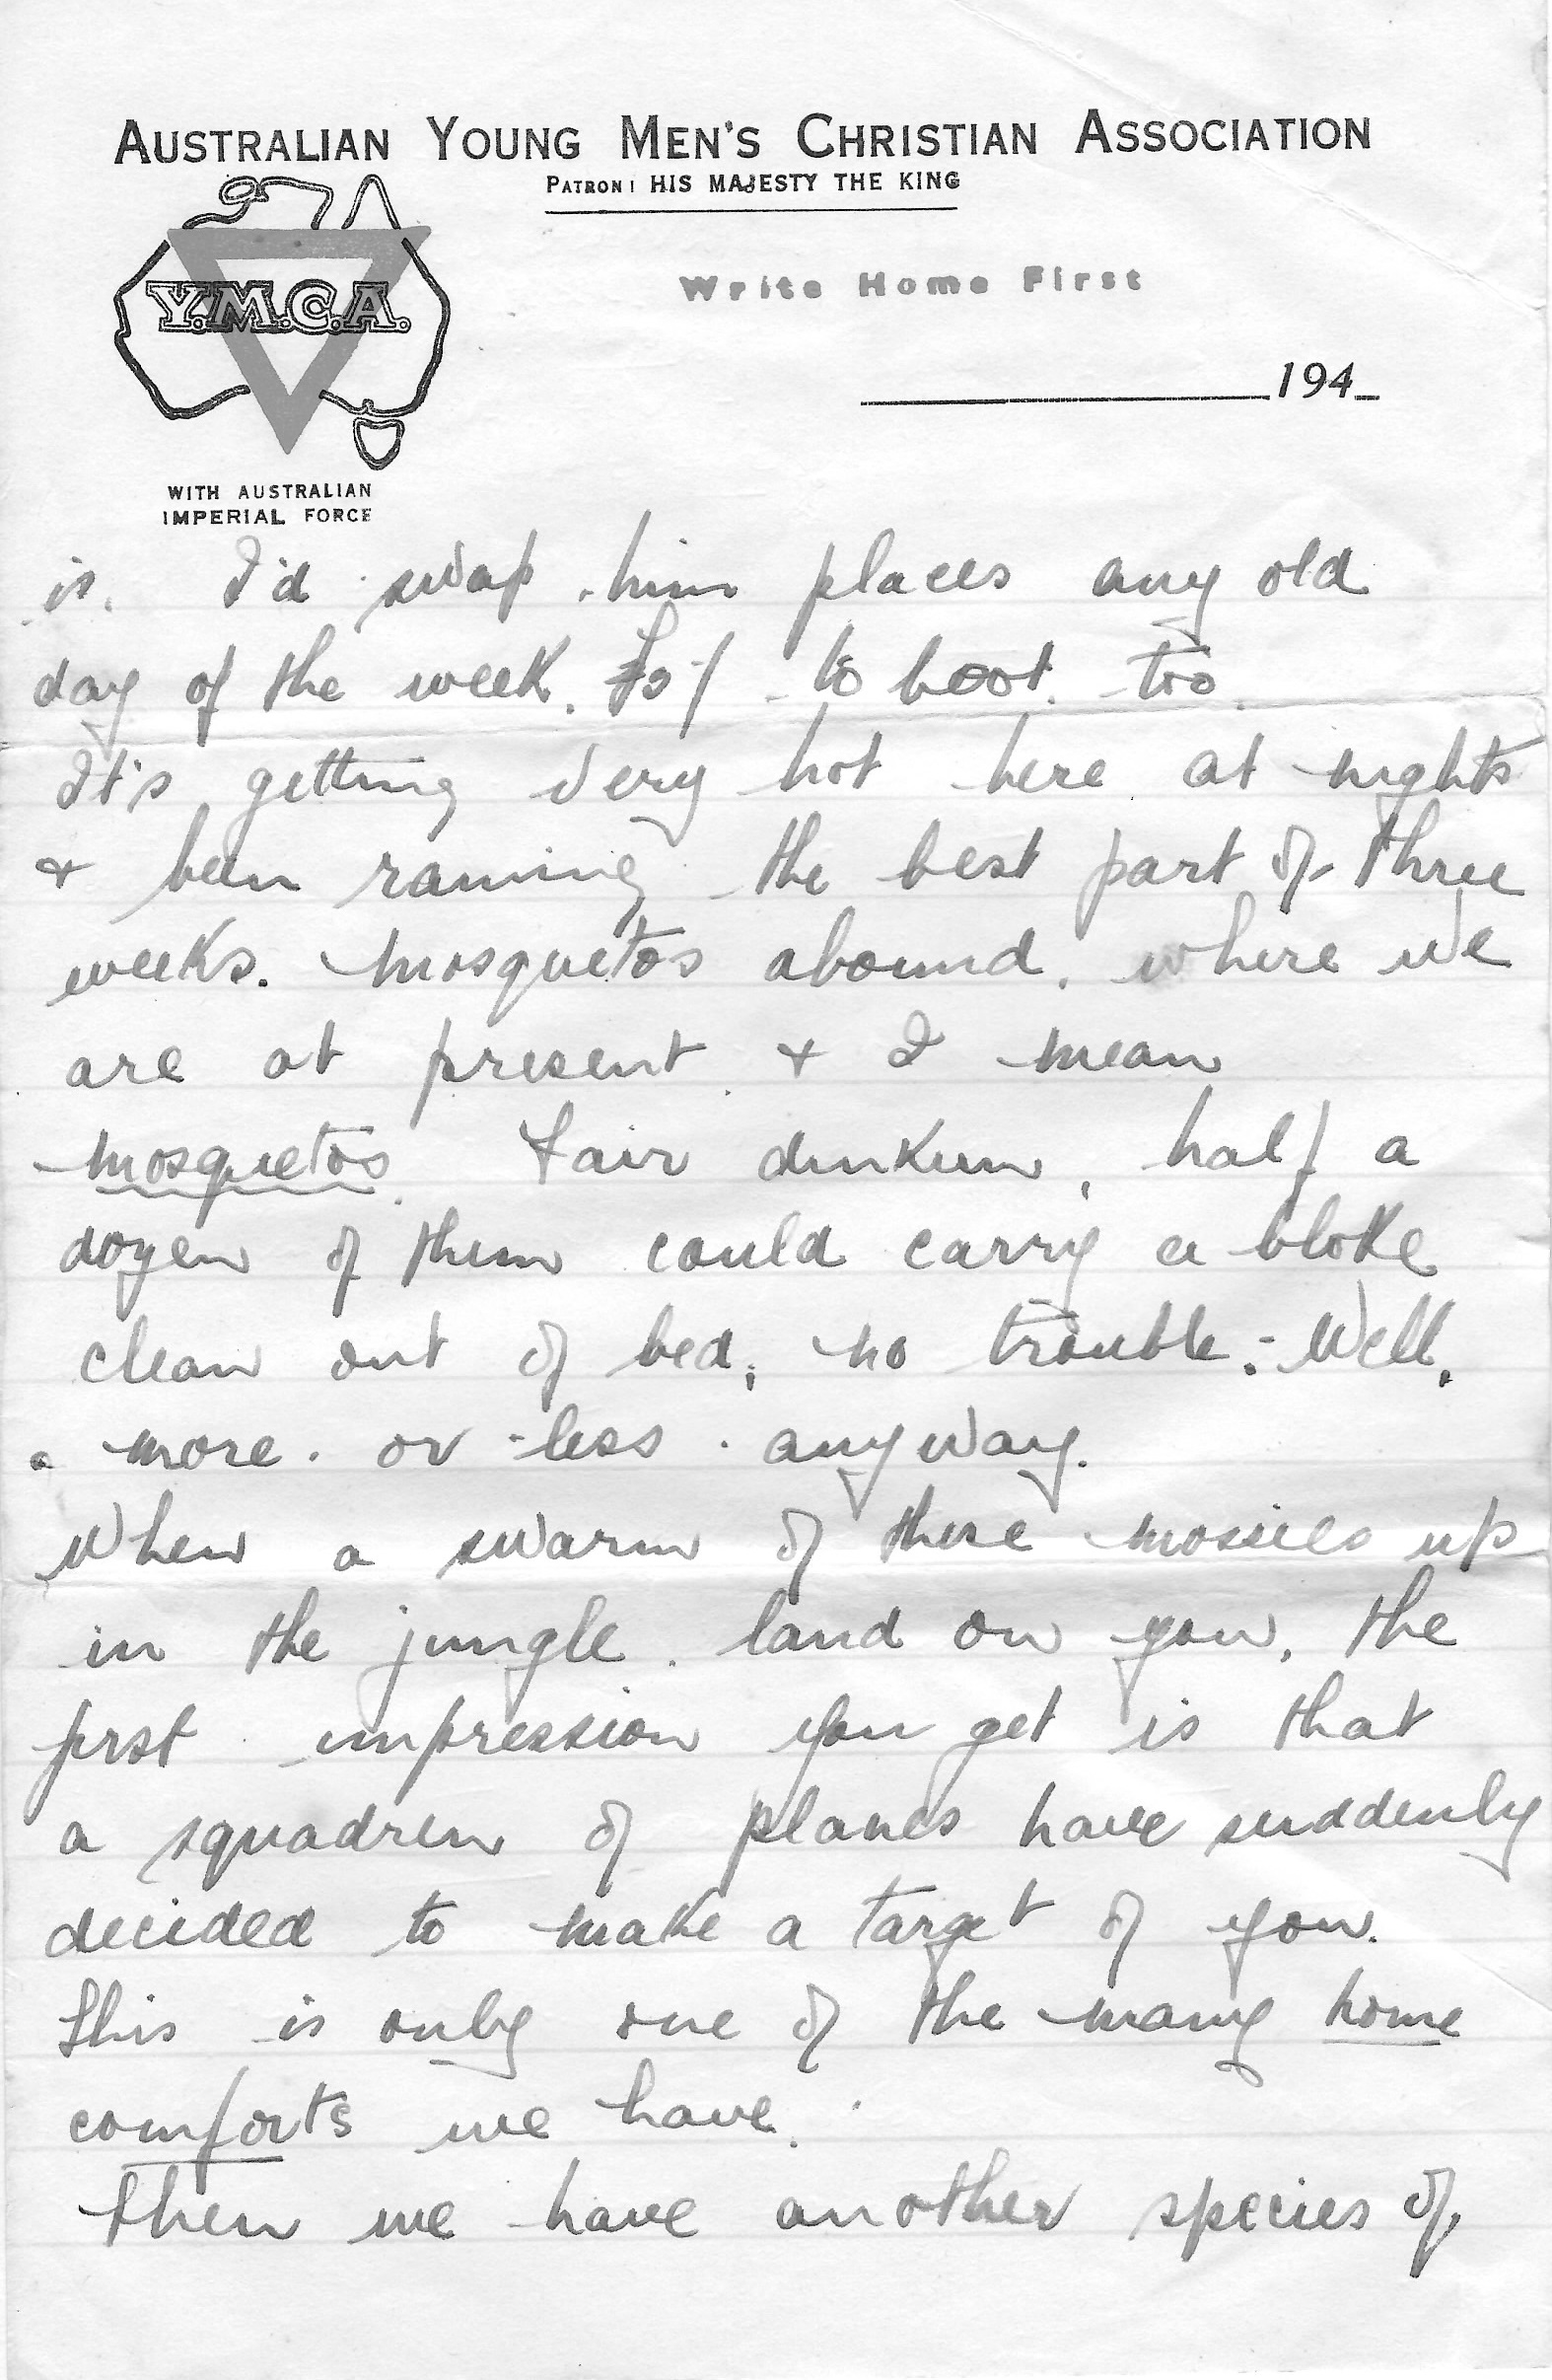 AUSTRALIAN YOUNG MEN'S CHRISTIAN ASSOCIATION
PATRON: HIS MAJESTY THE KING
Write Home First
Y.M.C.A.
194_
WITH AUSTRALIAN
IMPERIAL FORCE
is. I'd swap him places any old
day of the week. to boot. too.
It's getting very hot here at nights
+ been raining the best part of three
weeks. Mosquetos abound. where we
are at present. + I mean
mosquetos. Fair dinkum, half a
dozen of them could carry a bloke
clean out of bed; no trouble:- Well,
more. or less. anyway.
When a swarm of these mossies up
in the jungle. land on you, the
first impression you get is that
a squadren of planes have suddenly
decided to make a target of you.
This is only one of the many home
comforts we have.
Then we have another species of,